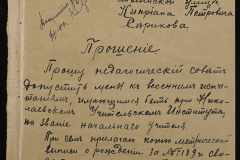 Никифора Петровича
Ларикова.
Прошение
Прошу педагогический совет
допустить меня ко весенним испы-
таниям, имеющимся быть при Нико-
лаевском Учительском Институте,
на звание начального учителя
При сем прилагаю копию метрической
выписи о рождении за № 189 и сви-